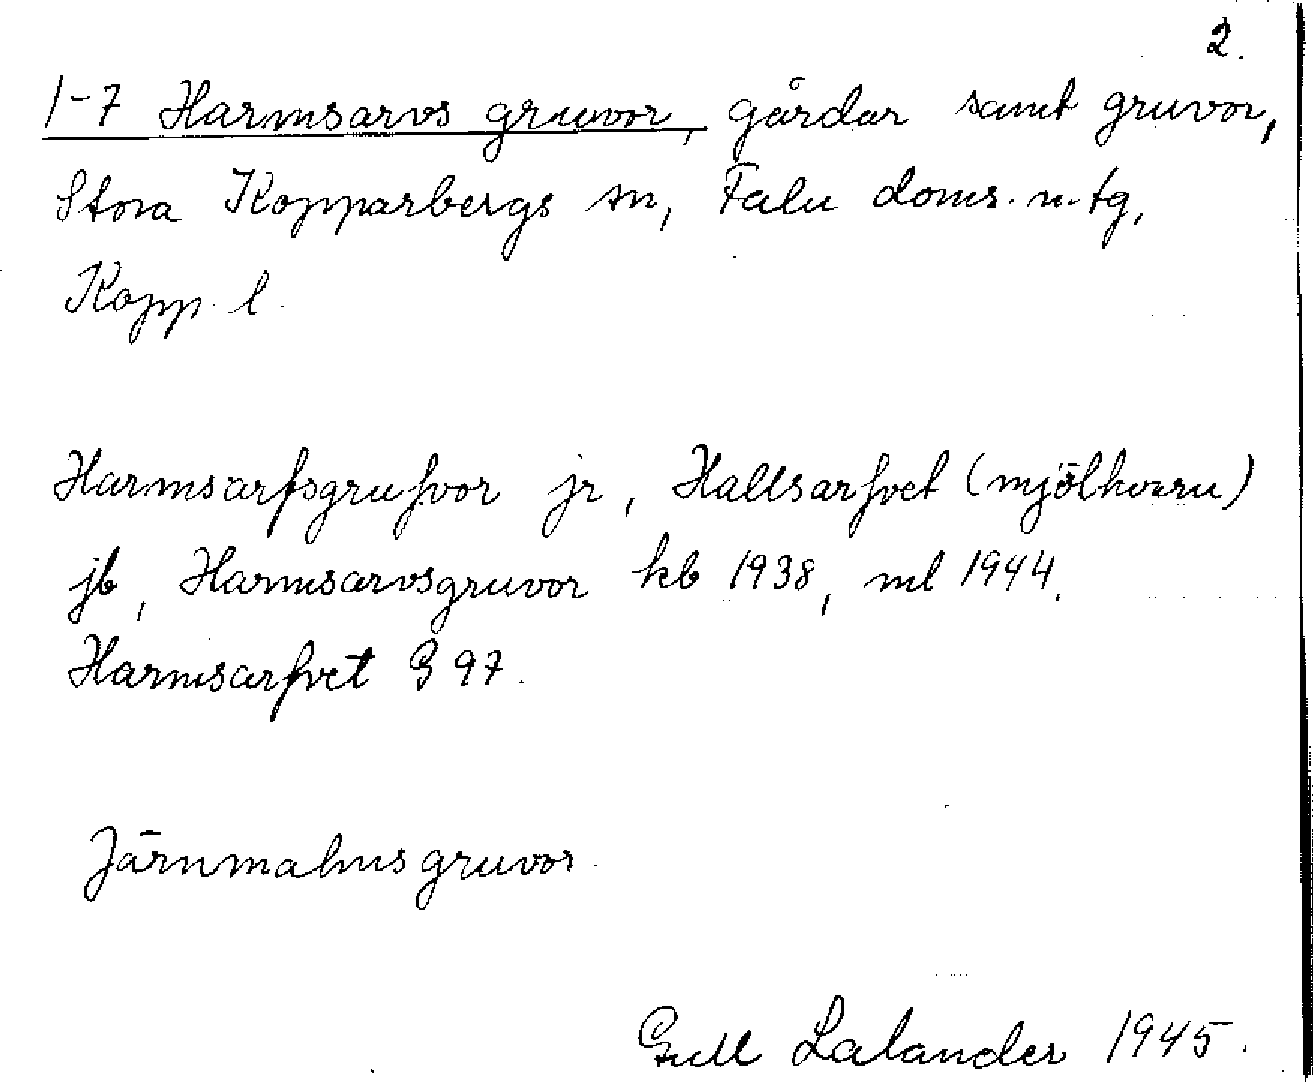 2.
1-7 Harmsarvs gruvor, gårdar samt gruvor,
Stora Kopparbergs sn, Falu doms. n. tg,
Kopp. l.
Harmsarfsgrufvor jr, Hallsarfvet (mjölkvarn)
jb, Harmsarvsgruvor kb 1938, ml 1944.
Harmsarfvet G 97.
Järnmalmsgruvor.
Gull Lalander 1945.